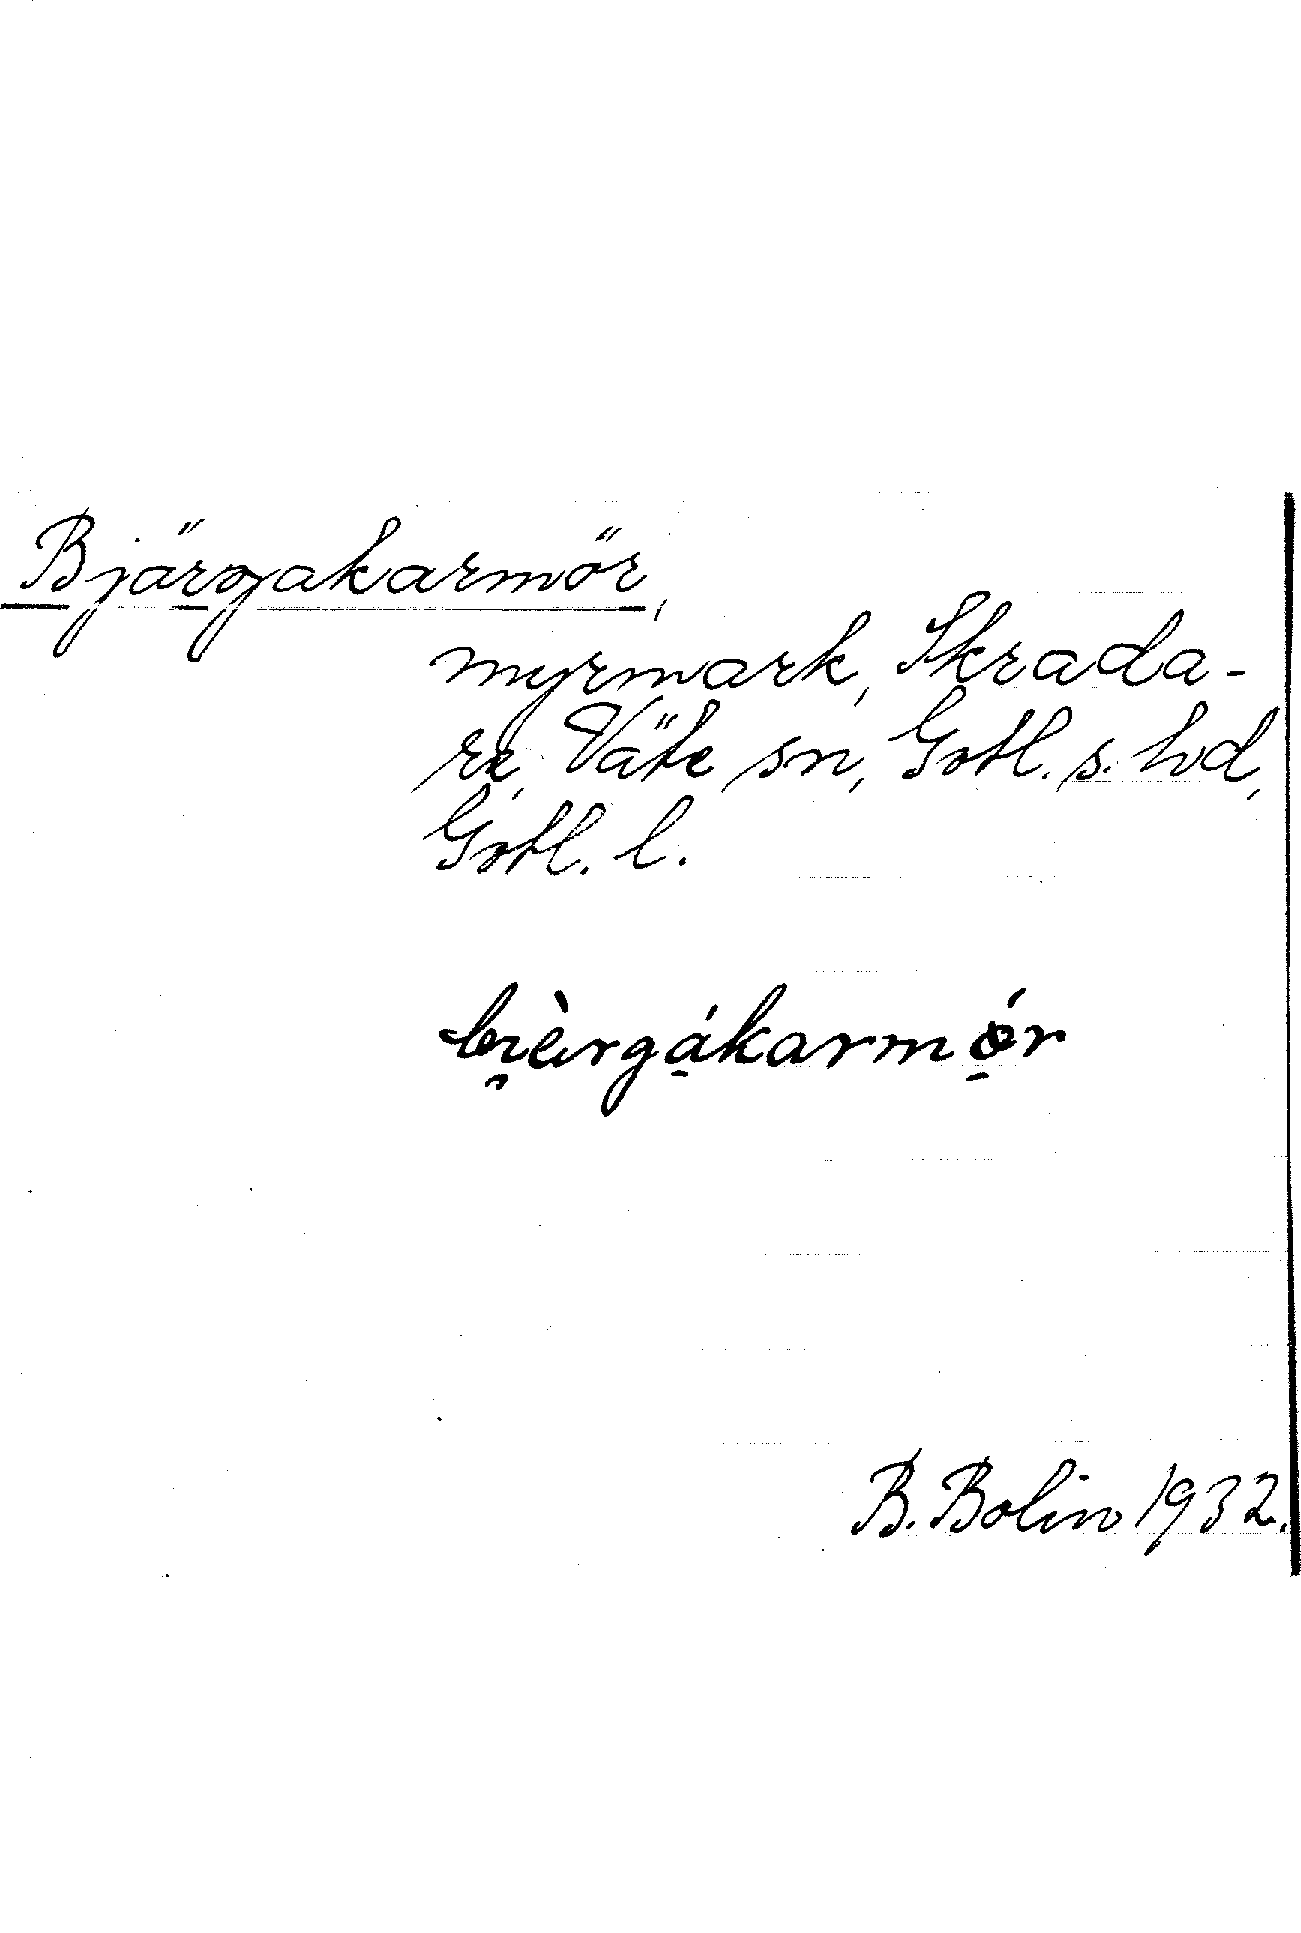 Bjärgakarmör,
myrmark, Skrada-
re, Väte sn, Gotl. s. hd,
Gotl. l.
bi̯èrgá̱karmǿ̱r
B. Bolin 1932.